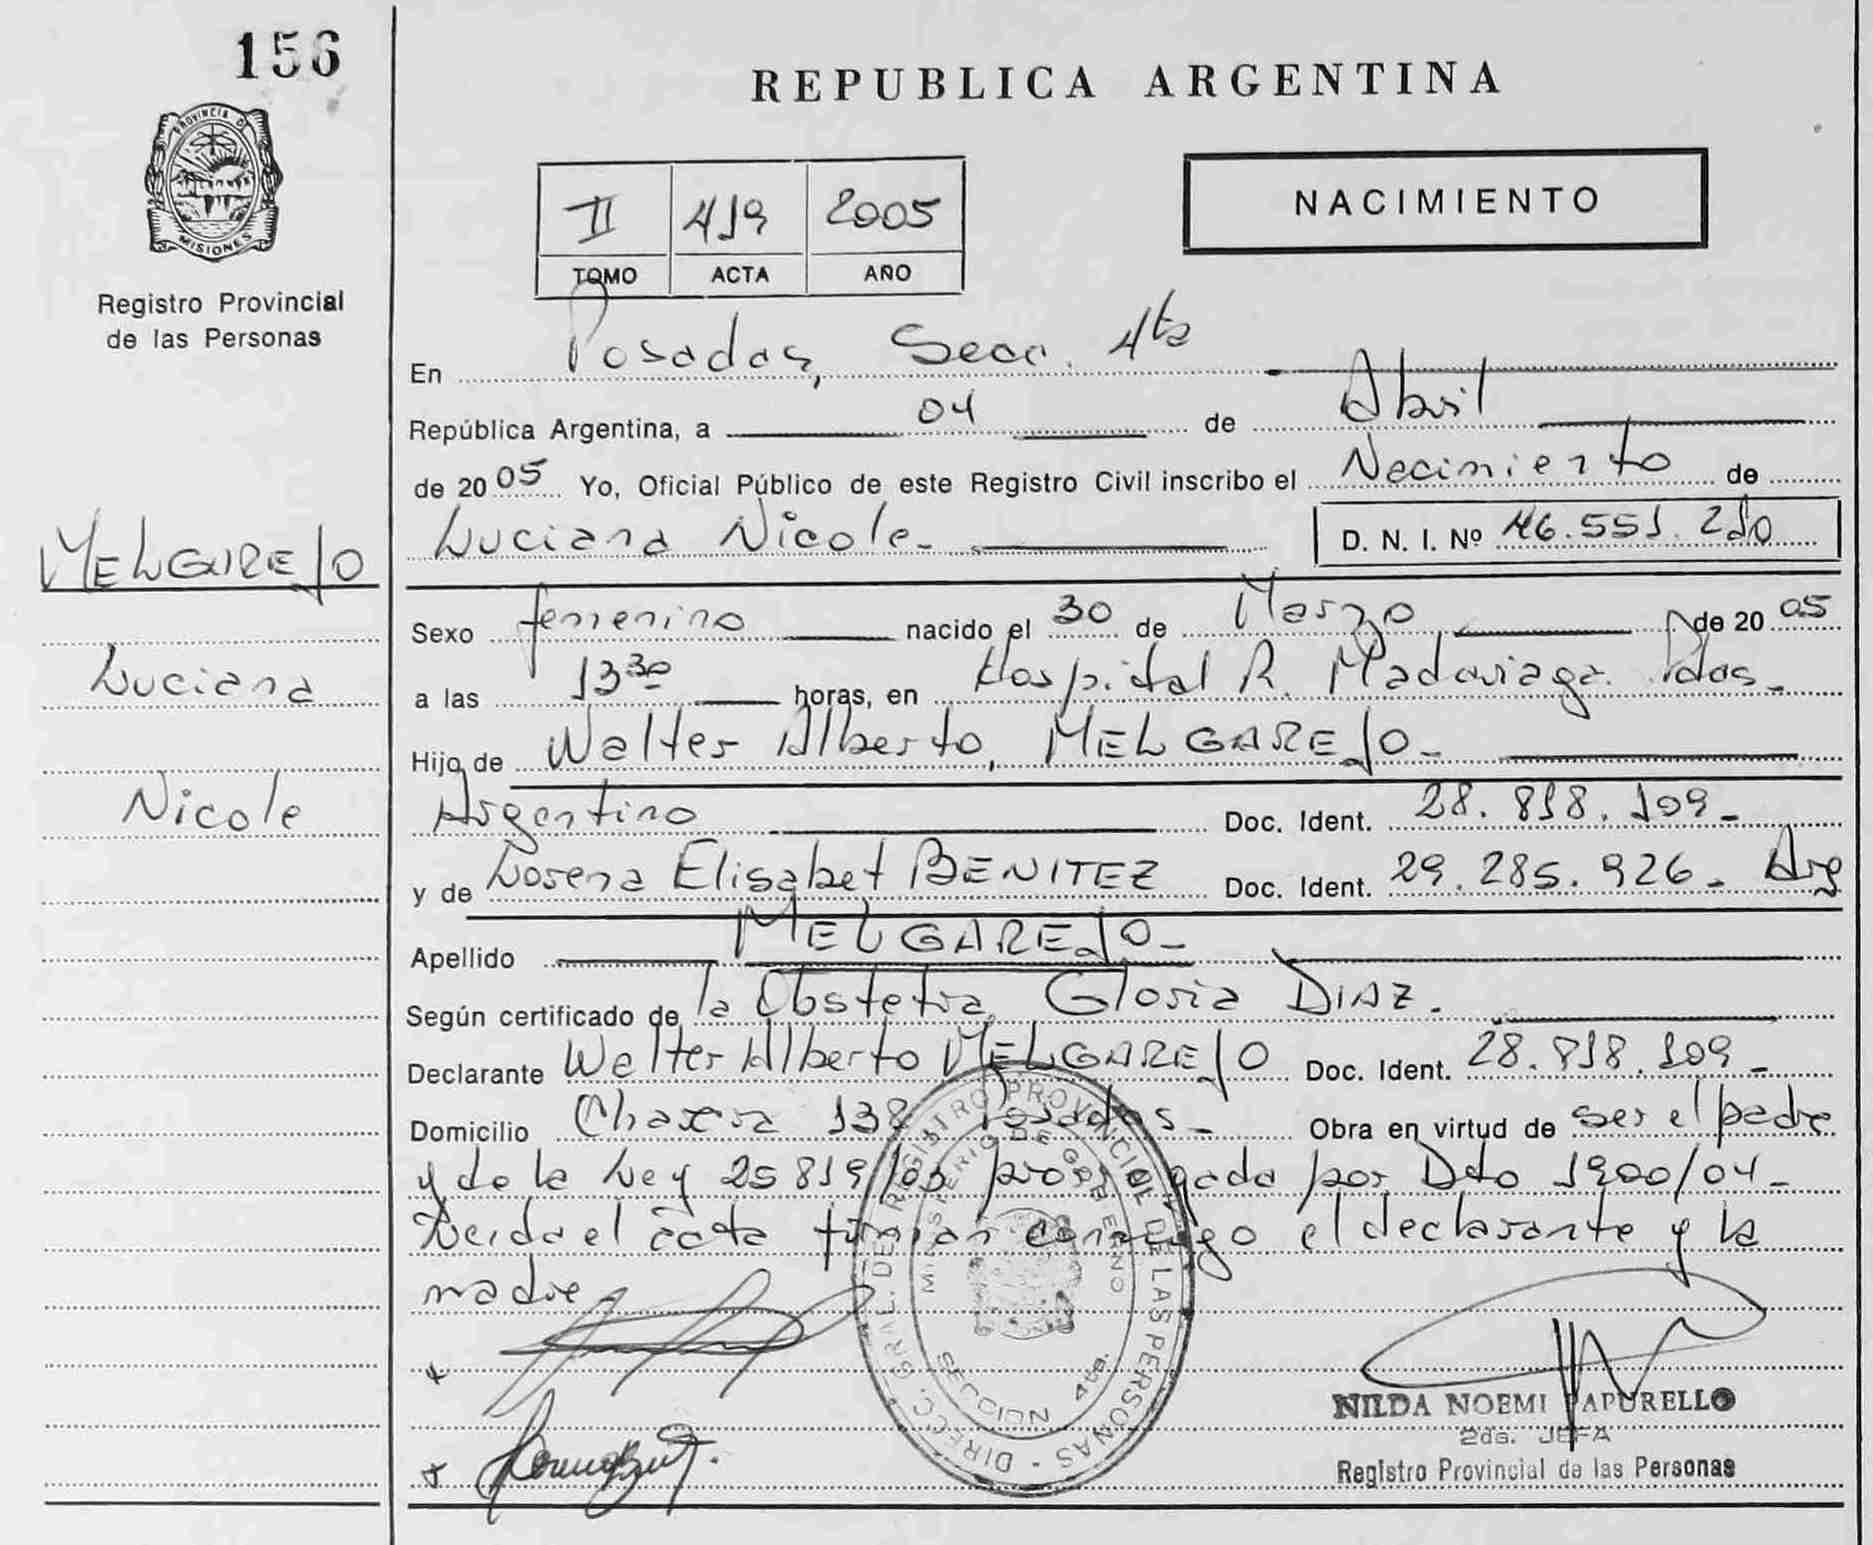 156
REPUBLICA ARGENTINA
PROVINCIA DE
MISIONES
Registro Provincial
de las Personas
II 419 2005
TOMO ACTA AÑO
NACIMIENTO
En Posadas, Secc. 4ta
República Argentina, a 04 de Abril
de 2005 Yo, Oficial Público de este Registro Civil inscribo el Nacimiento de
Luciana Nicole- D. N. I. Nº 46.551.210
MELGAREJO
Luciana
Nicole
Sexo femenino nacido el 30 de Marzo de 2005
a las 13 30 horas, en Hospital R. Madariaga. Pdas-
Hijo de Walter Alberto, MELGAREJO-
Argentino Doc. Ident. 28.818.109-
y de Lorena Elisabet BENITEZ Doc. Ident. 29.285.926- Arg
Apellido MELGAREJO-
Según certificado de la Obstetra, Gloria DIAZ.
Declarante Walter Alberto MELGAREJO Doc. Ident. 28.818.109-
Domicilio Chacra 138 Posadas- Obra en virtud de ser el padre
y de la Ley 25819/03 prorrogada por Dto 1900/04-
Leida el acta firman conmigo el declarante y la
madre-
DIRECC. GRAL. DEL REGISTRO PROVINCIAL DE LAS PERSONAS
MINISTERIO DE GOBIERNO
SECCION 4ta.
NILDA NOEMI PAPURELLO
2da. JEFA
Registro Provincial de las Personas